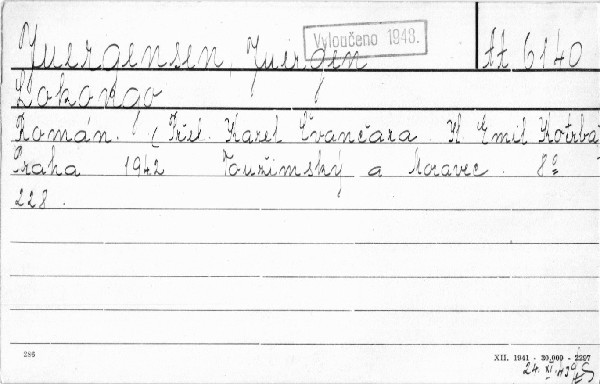 Vyloučeno 1948.
Juergensen, Juergen At 6140
Lokongo
Román. (Přel. Karel Čvančara. Il. Emil Kotrba)
Praha 1942 Toužimský a Moravec. 8°
228.
286
XII. 1941 - 30.000 - 2297
24. XI. 43